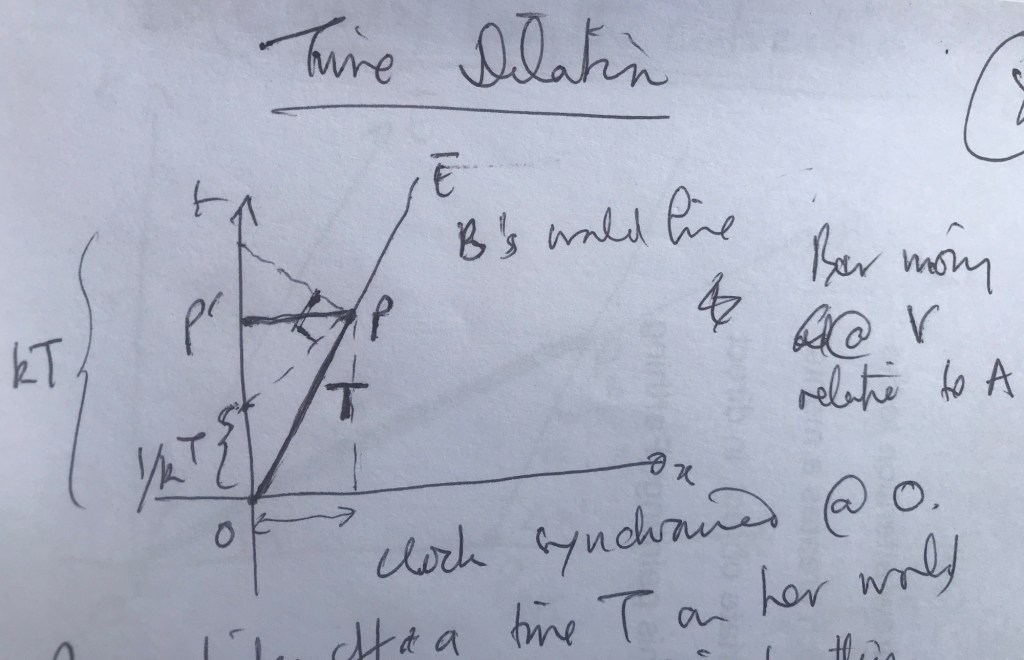 Time Dilation
t
Ē
B's world line
B or moving
@ V
relative to A
P'
P
kT
T
1/kT
x
O
clock synchronised @ O.
a time T on her world